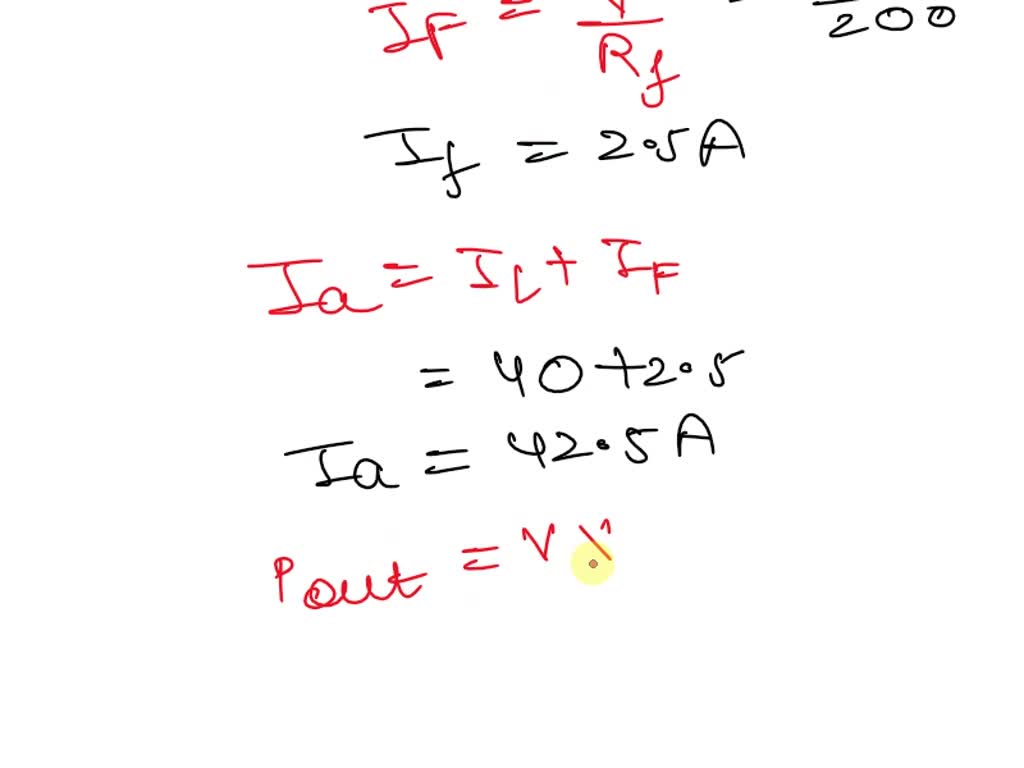 I_F = V/R_f = /200
I_f = 2.5A
I_a = I_L + I_F
= 40+2.5
I_a = 42.5A
Pout = V